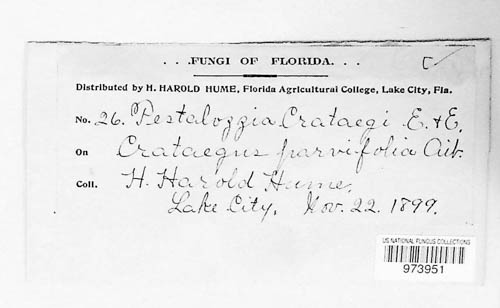 . . .FUNGI OF FLORIDA. . .
Distributed by H. HAROLD HUME, Florida Agricultural College, Lake City, Fla.
No. 26. Pestalozzia Crataegi E. & E.
On Crataegus parvifolia Ait.
Coll. H. Harold Hume,
Lake City, Nov. 22. 1899.
US NATIONAL FUNGUS COLLECTIONS
973951